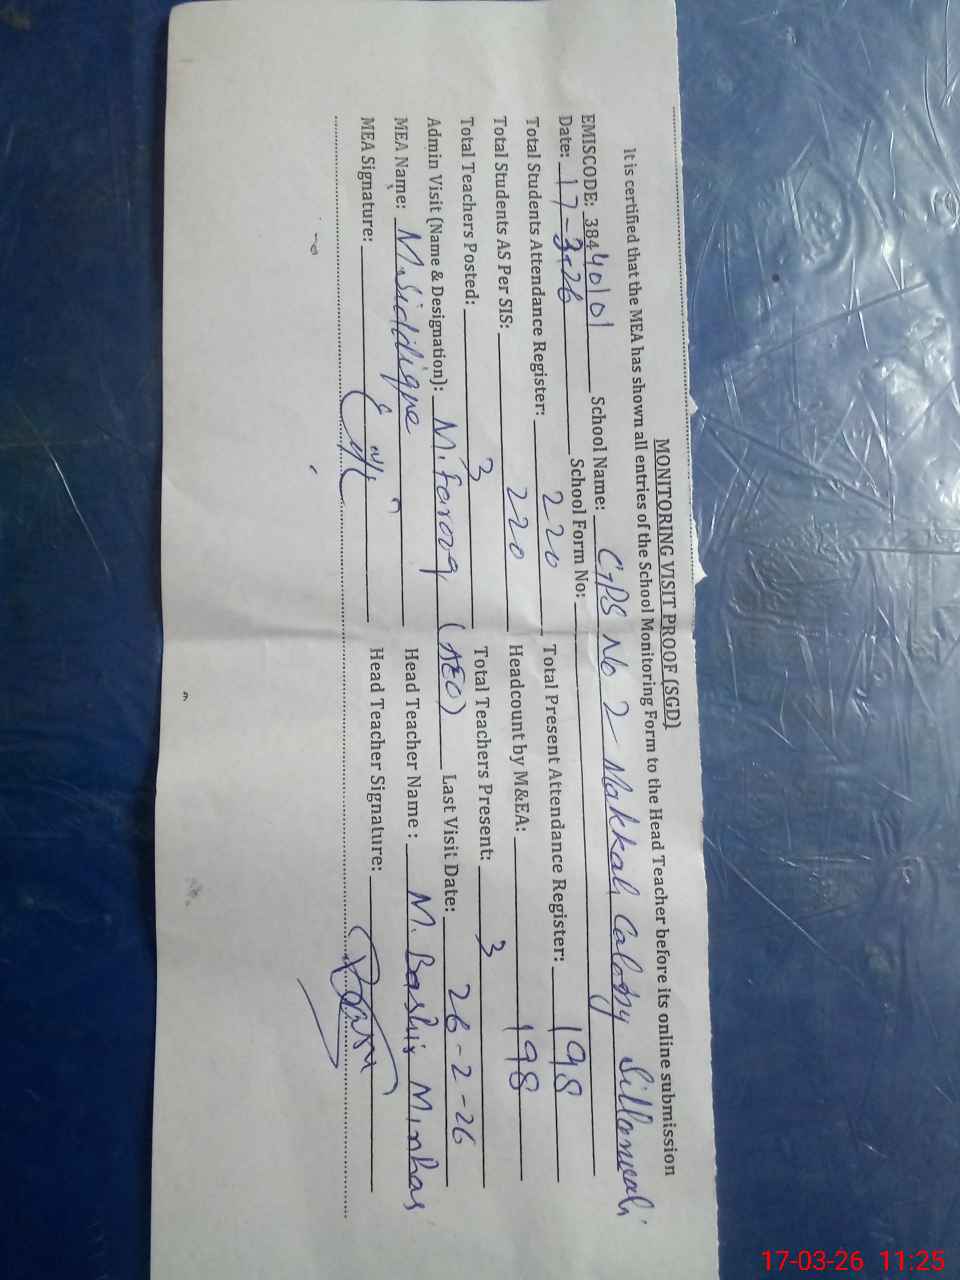 MONITORING VISIT PROOF (SGD)
It is certified that the MEA has shown all entries of the School Monitoring Form to the Head Teacher before its online submission
EMISCODE: 38440101 School Name: GPS No 2 Makkah Calony Sillanwali
Date: 17-3-26 School Form No:
Total Students Attendance Register: 220 Total Present Attendance Register: 198
Total Students AS Per SIS: 220 Headcount by M&EA: 198
Total Teachers Posted: 3 Total Teachers Present: 3
Admin Visit (Name & Designation): M. Farooq (AEO) Last Visit Date: 26-2-26
MEA Name: M. Siddique Head Teacher Name : M. Bashir Minhas
MEA Signature: Head Teacher Signature:
17-03-26 11:25